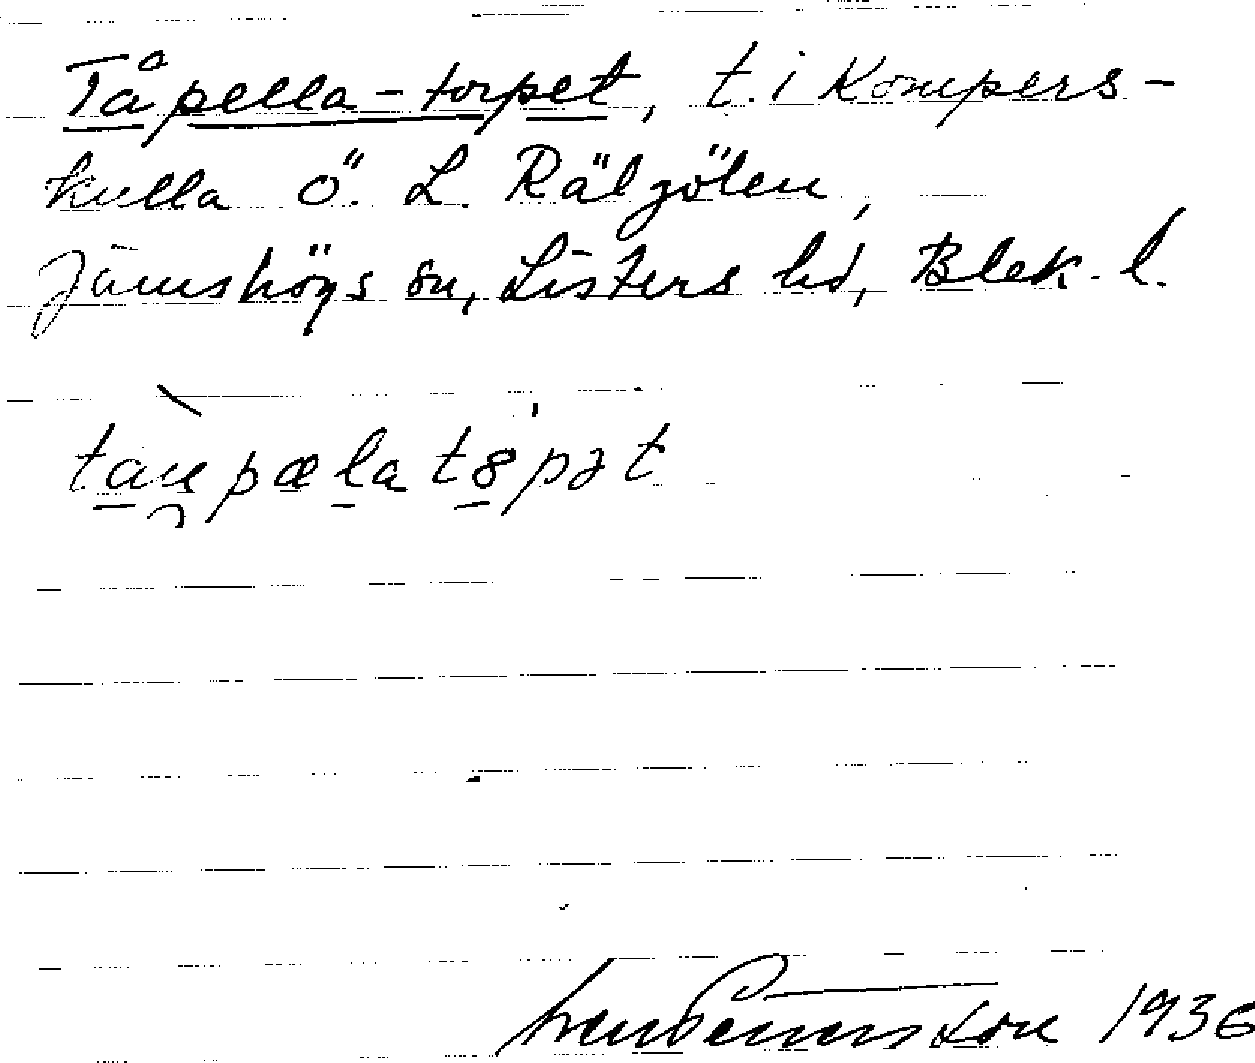 Tåpella-torpet, t. i Kompers-
kulla Ö. L. Rälgölen,
Jämshögs sn, Listers hd, Blek. l.
taupælatspət
Sven Benson 1936